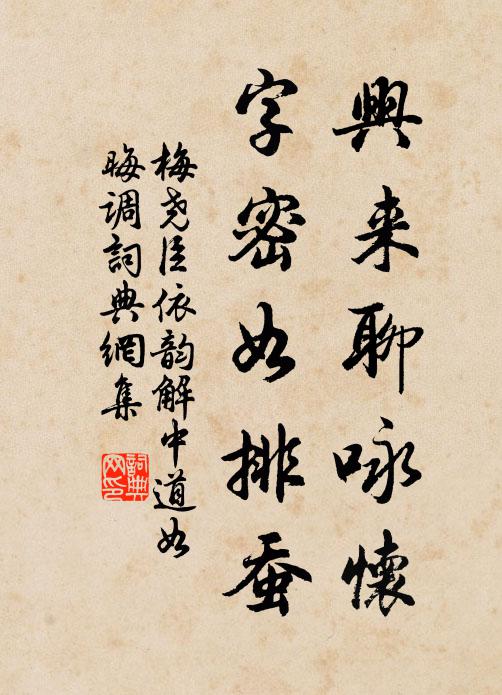 興来聊咏懷
字密如排蚕
梅尧臣依韵解中道如
晦调詞典網集
詞典
网印